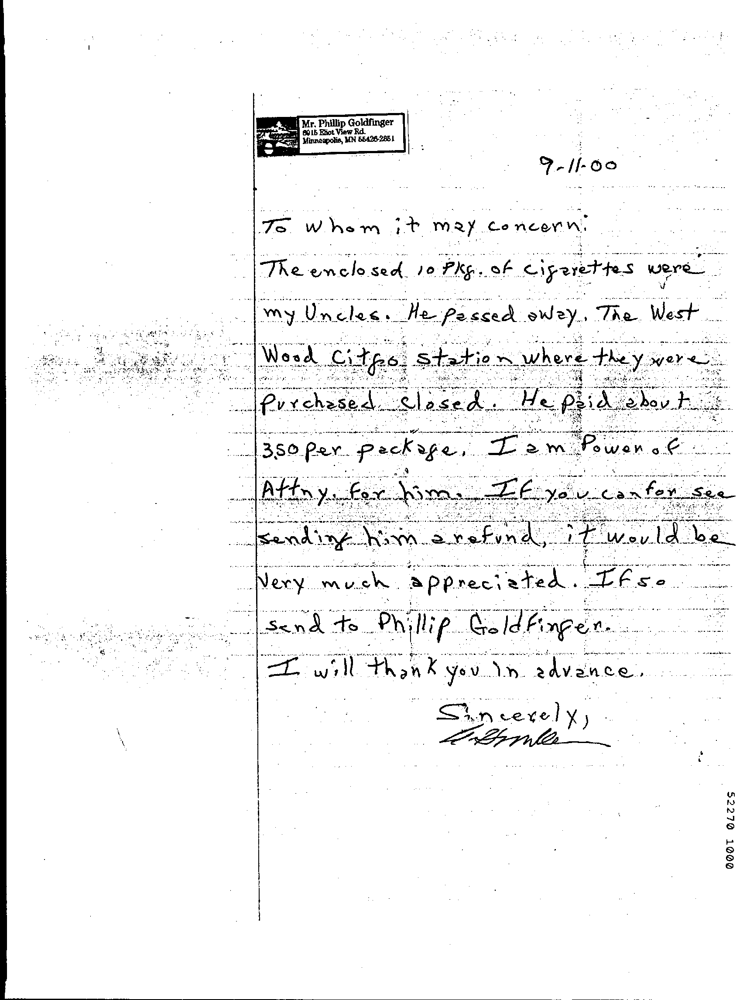 Mr. Phillip Goldfinger
Eliot View Rd.
Minneapolis, MN
9-11-00
To whom it may concern:
The enclosed 10 Pkg. of cigarettes were
my Uncles. He passed away. The West
Wood Citgo station where they were
purchased closed. He paid about
3.50 per package. I am Power of
Attny. for him. If you can for see
sending him a refund, it would be
Very much appreciated. If so
send to Phillip Goldfinger.
I will thank you in advance.
Sincerely,
52270 1000